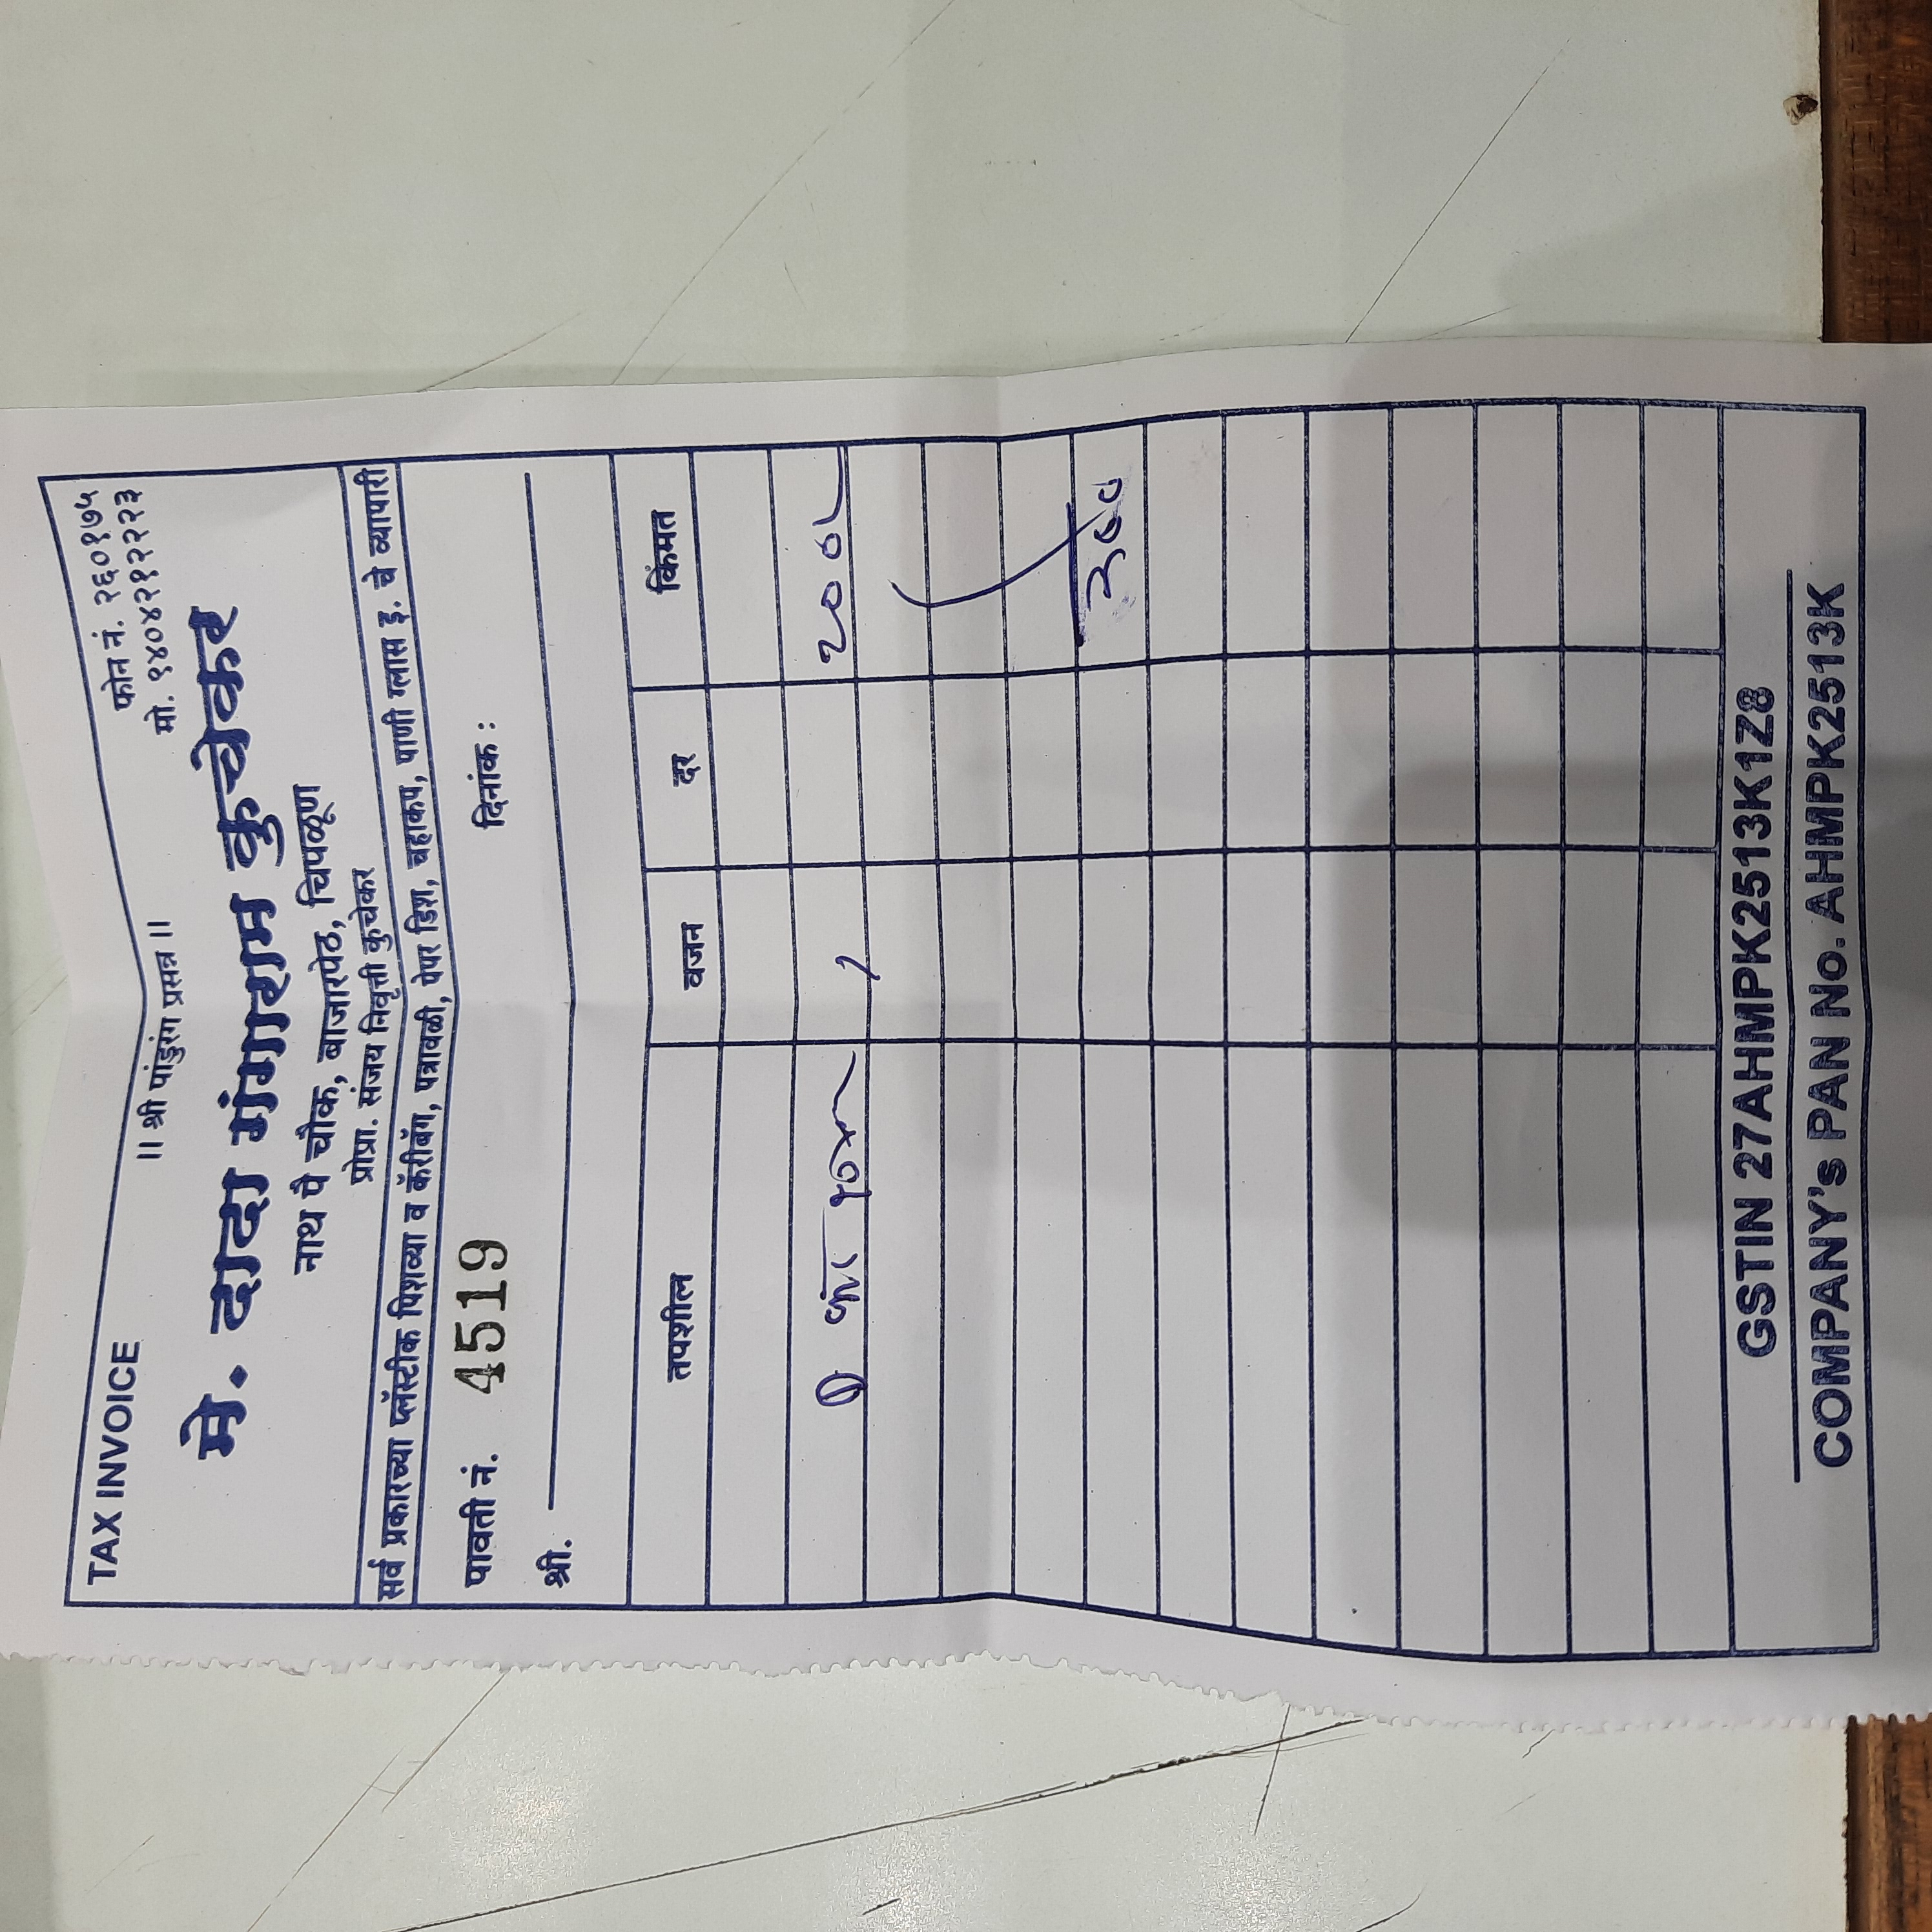 TAX INVOICE
फोन नं. २६०१७५
॥ श्री पांडुरंग प्रसन्न ॥
मो. ९४०४२१२२२३
मे. दादा गंगाराम कुचेकर
नाथ पै चौक, बाजारपेठ, चिपळूण
प्रोप्रा. संजय निवृत्ती कुचेकर
सर्व प्रकारच्या प्लॅस्टीक पिशव्या व कॅरीबॅग, पत्रावळी, पेपर डिश, चहाकप, पाणी ग्लास इ. चे व्यापारी
पावती नं. 4519 दिनांक :
श्री.
तपशील वजन दर किंमत
GSTIN 27AHMPK2513K1Z8
COMPANY's PAN No. AHMPK2513K